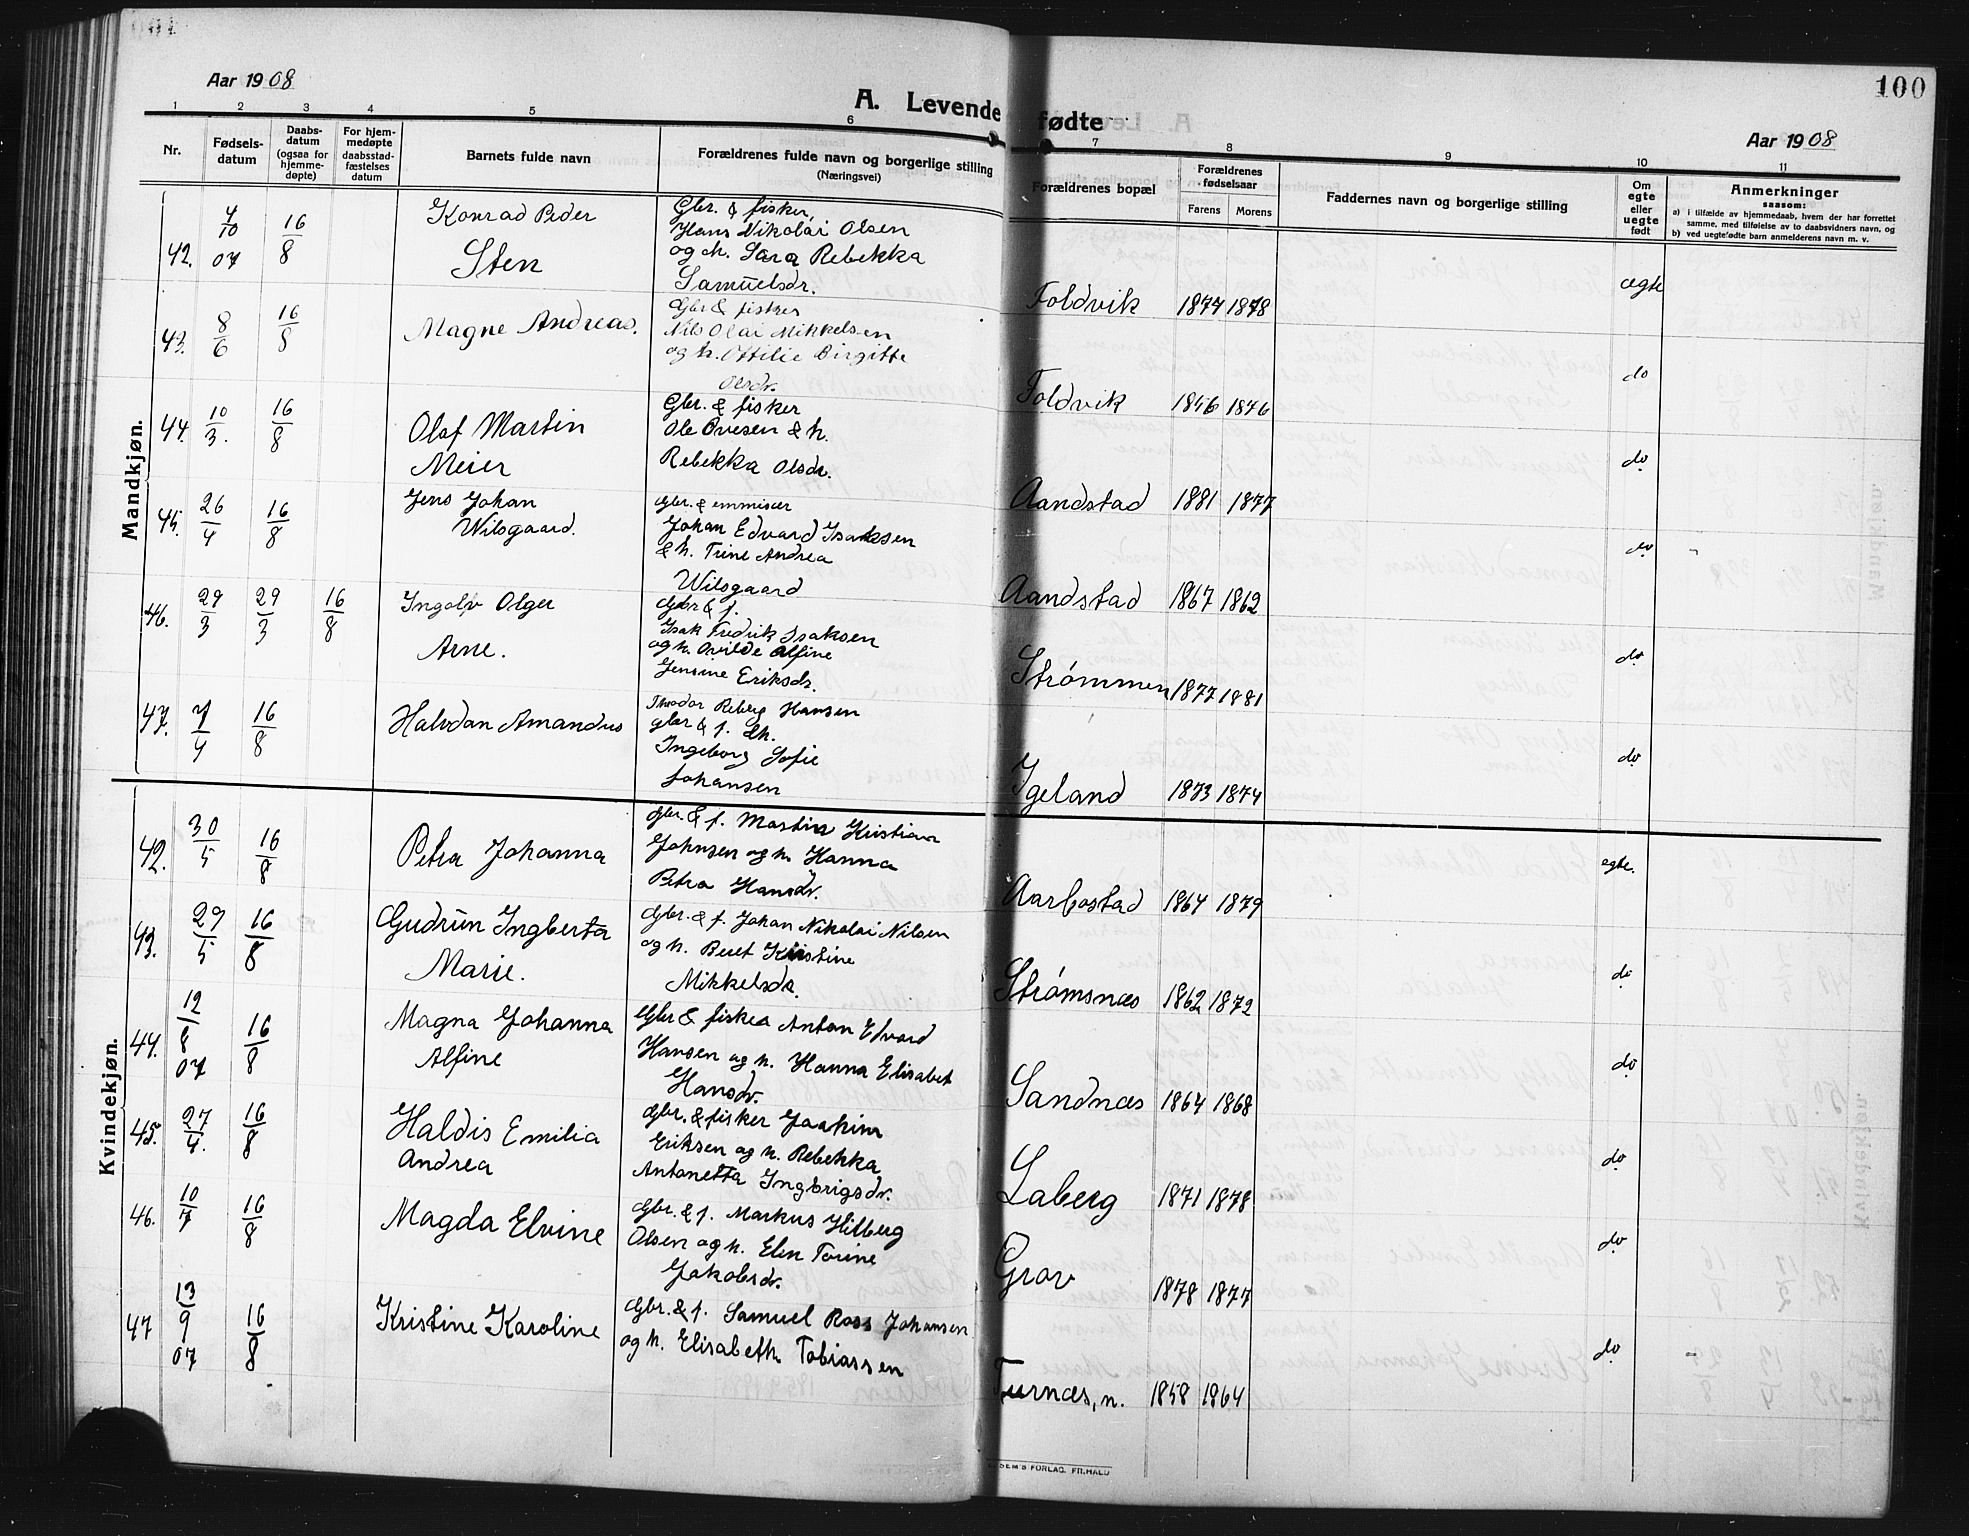 Aar 1908
A. Levende fødte
100
Aar 1908
1 2 3 4 5 6 7 8 9 10 11
Nr.
Fødsels-
datum
Daabs-
datum
(ogsaa for
hjemme-
døpte)
For hjem-
medøpte
daabsstad-
fæstelses
datum
Barnets fulde navn
Forældrenes fulde navn og borgerlige stilling
(Næringsvei)
Forældrenes bopæl
Forældrenes
fødselsaar
Farens Morens
Faddernes navn og borgerlige stilling
Om
egte
eller
uegte
født
Anmerkninger
saasom:
a) i tilfælde av hjemmedaab, hvem der har forrettet
samme, med tilføielse av to daabsvidners navn, og
b) ved uegtefødte barn anmelderens navn m. v.
Mandkjøn.
42. 07 16/8
Konrad Peder
Sten
Gbr. & fisker,
Hans Nikolai Olsen
og h. Sara Rebekka
Samuelsdr.
Foldvik 1877 1878 egte
43. 8/6 16/8
Magne Andreas.
Gbr & fisker
Nils Olai Mikkelsen
og h. Ottilie Birgitte
Olsdr.
Foldvik 1846 1846 do
44. 10/3. 16/8
Olaf Martin
Meier
Gbr. & fisker
Ole Ovesen & h.
Rebekka Olsdr.
Aandstad 1881 1877 do
45. 26/4 16/8
Jens Johan
Wilsgaard.
Gbr. & emmisær
Johan Edvard Isaksen
& h. Trine Andrea
Wilsgaard
Aandstad 1867 1862 do
46. 29/3 29/3 16/8
Ingolv Olger
Arne.
Gbr & f.
Isak Fredrik Isaksen
og h. Ovilde Alfine
Jensine Eriksdr.
Strømmen 1877 1881 do
47. 7/4 16/8
Halvdan Amandus
Theodor Reberg Hansen
gbr & f. & h.
Ingeborg Sofie
Johansen
Igeland 1873 1874 do
Kvindekjøn.
42. 30/5 16/8
Petra Johanna
Gbr. & f. Martin Kristian
Johnsen og h. Hanna
Petra Hansdr.
Aarbostad 1864 1879 egte.
43. 29/5 16/8
Gudrun Ingberta
Marie.
Gbr. & f. Johan Nikolai Nilsen
og h. Beret Kristine
Mikkelsdr.
Strømsnæs 1862 1872 do
44. 12/8 07 16/8
Magna Johanna
Alfine
Gbr & fisker Anton Edvard
Hansen og h. Hanna Elisabet
Hansdr.
Sandnæs 1864 1868 do
45. 27/4. 16/8
Haldis Emilia
Andrea
Gbr. & fisker Joakim
Eriksen og h. Rebekka
Antonetta Ingbrigsdr.
Laberg 1871 1878 do
46. 10/7 16/8
Magda Elvine
Gbr. & f. Markus Hilberg
Olsen og h. Elen Torine
Jakobsdr.
Grav 1878 1877 do
47 13/9 07 16/8
Kristine Karoline
Gbr. & f. Samuel Ross Johansen
og h. Elisabeth Tobiassen
Turnæs, n. 1858 1864 do
SEM'S FORLAG. FR. HALD